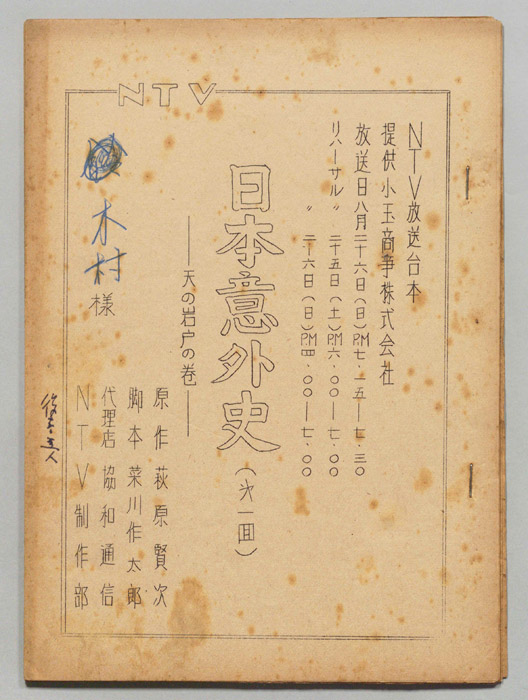 NTV
NTV放送台本
提供小玉商事株式会社
放送日八月二十六日(日)P.M七・一五―七・三〇
リハーサル〃二十五日(土)P.M六・〇〇―七・〇〇
〃二十六日(日)P.M四・〇〇―七・〇〇
日本意外史(第一回)
――天の岩戸の巻――
原作萩原賢次
脚本菜川作太郎
代理店協和通信
NTV制作部
木村様